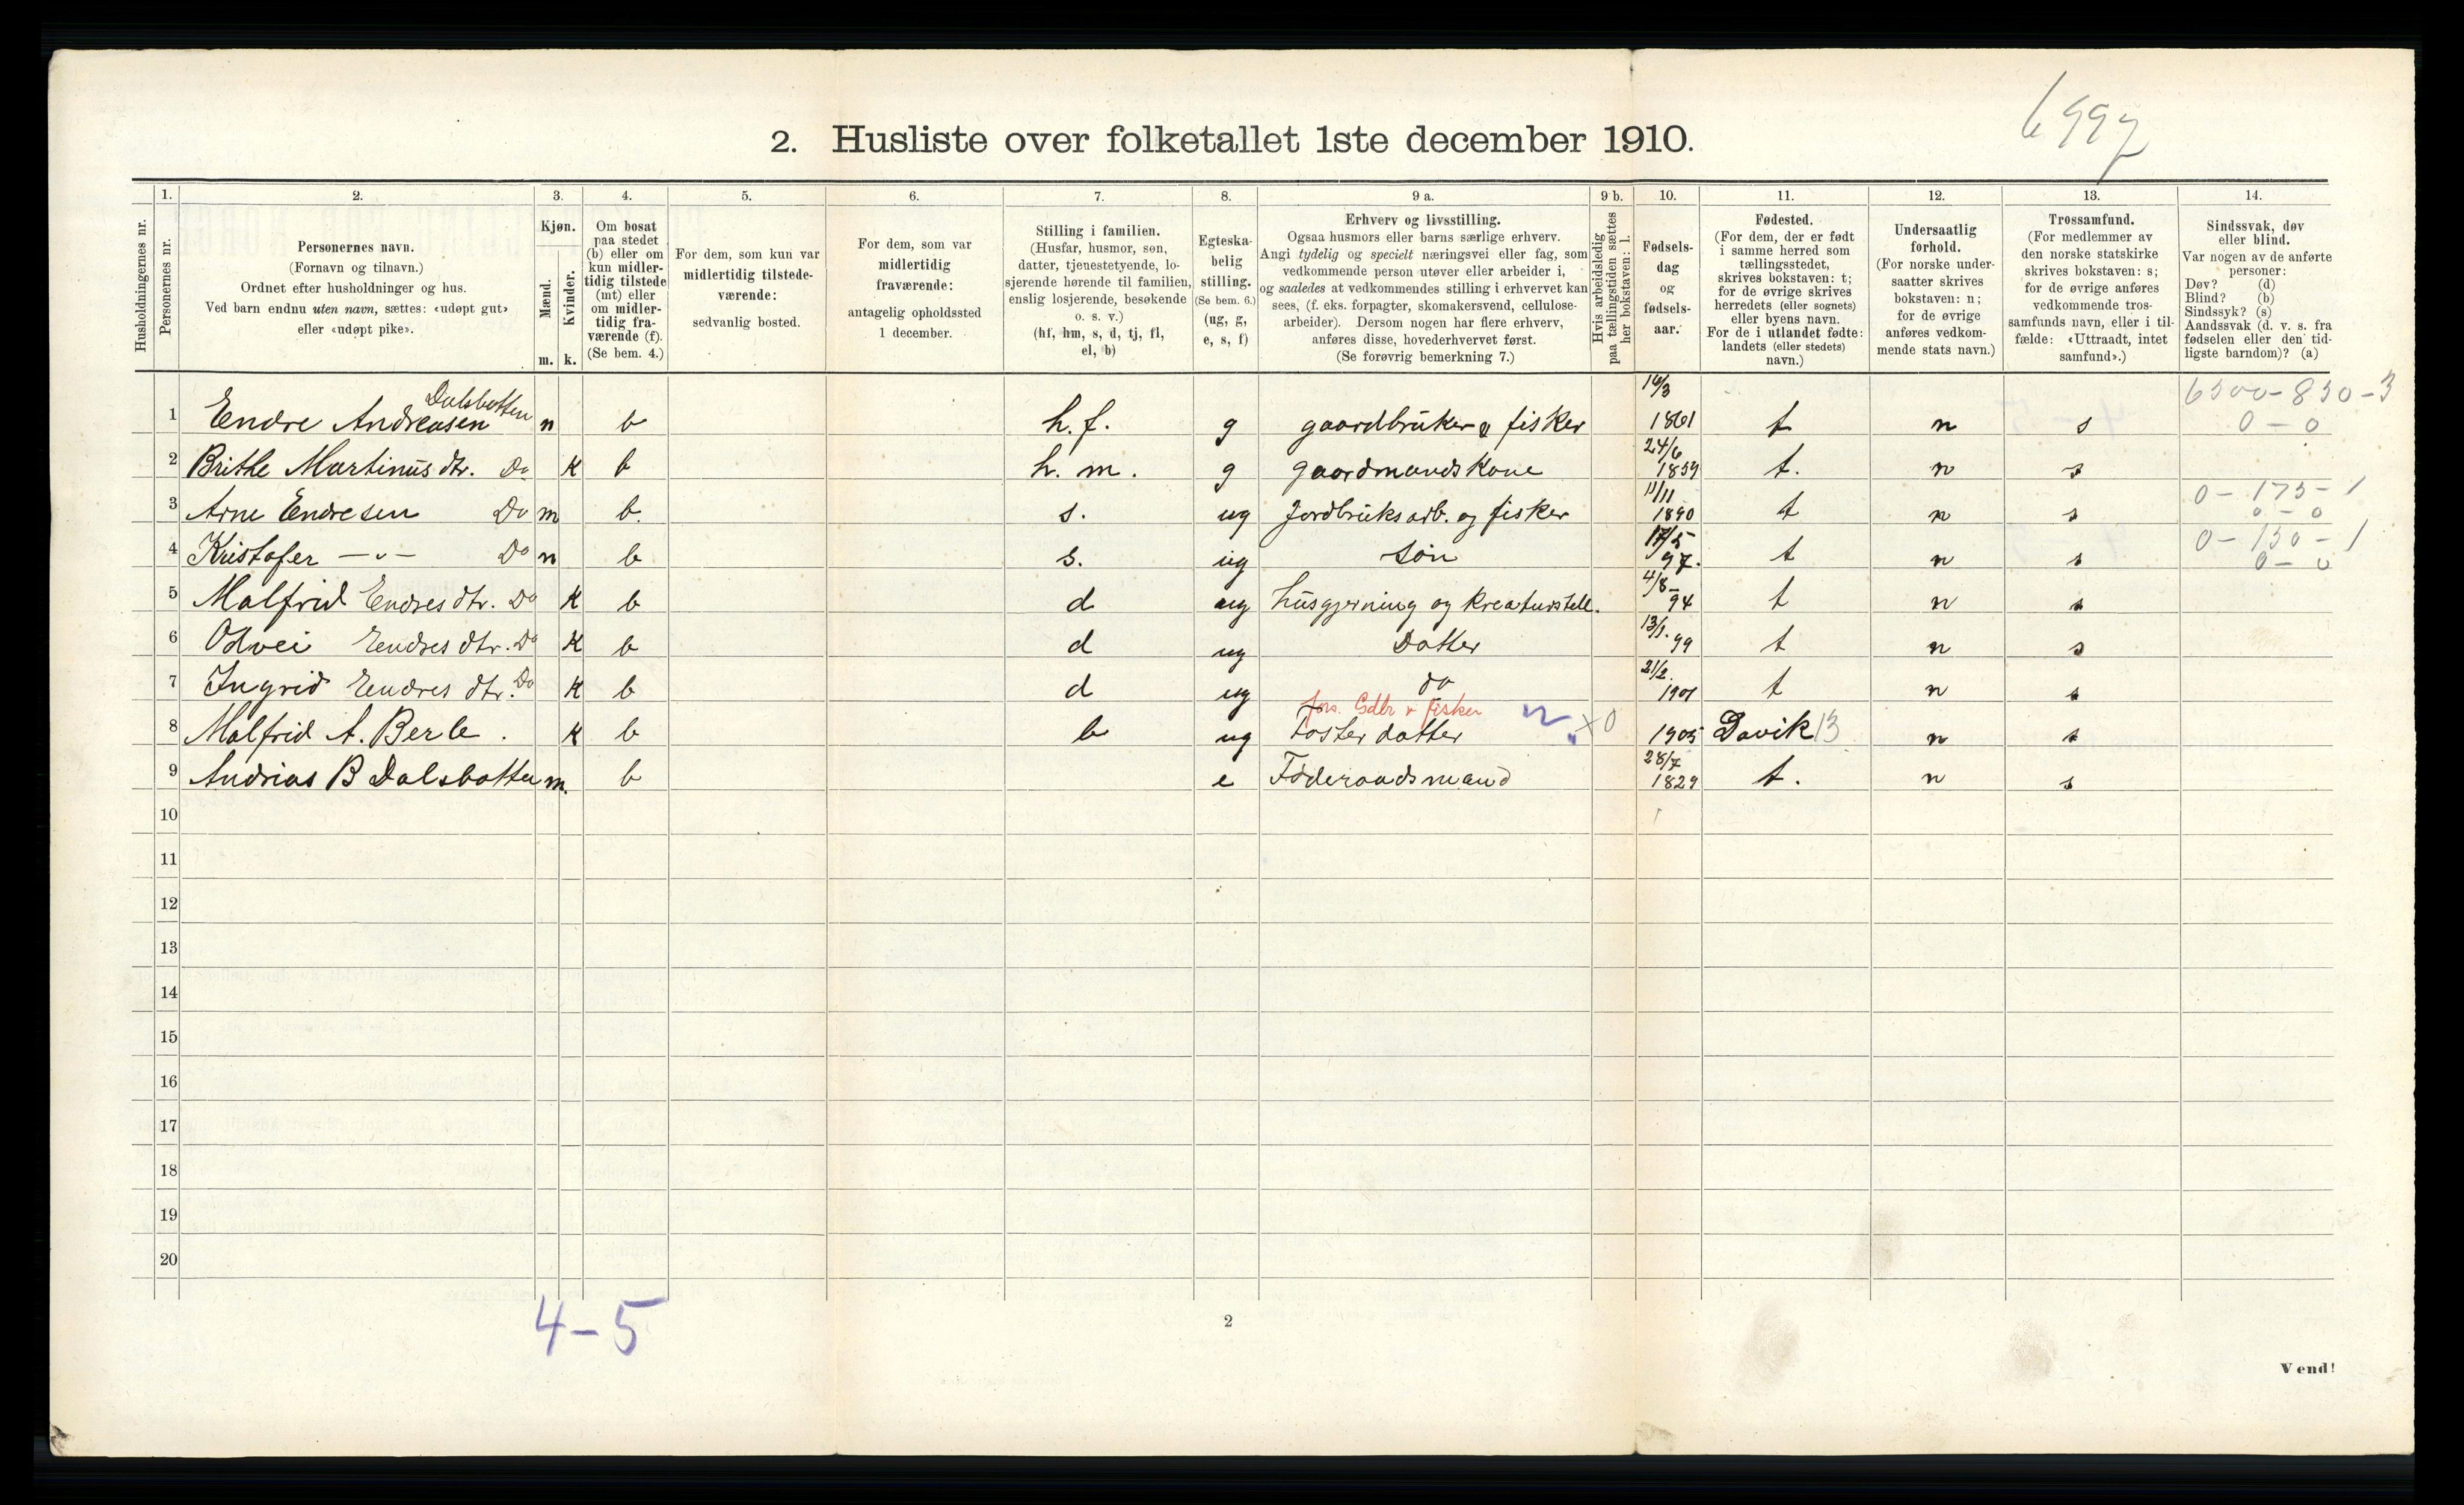 6997
2. Husliste over folketallet 1ste december 1910.
Husholdningernes nr.
1. Personernes nr.
2. Personernes navn.
(Fornavn og tilnavn.)
Ordnet efter husholdninger og hus.
Ved barn endnu uten navn, sættes: «udøpt gut»
eller «udøpt pike».
3. Kjøn.
Mænd. m.
Kvinder. k.
4. Om bosat
paa stedet
(b) eller om
kun midler-
tidig tilstede
(mt) eller
om midler-
tidig fra-
værende (f).
(Se bem. 4.)
5. For dem, som kun var
midlertidig tilstede-
værende:
sedvanlig bosted.
6. For dem, som var
midlertidig
fraværende:
antagelig opholdssted
1 december.
7. Stilling i familien.
(Husfar, husmor, søn,
datter, tjenestetyende, lo-
sjerende hørende til familien,
enslig losjerende, besøkende
o. s. v.)
(hf, hm, s, d, tj, fl,
el, b)
8. Egteska-
belig
stilling.
(Se bem. 6.)
(ug, g,
e, s, f)
9 a. Erhverv og livsstilling.
Ogsaa husmors eller barns særlige erhverv.
Angi tydelig og specielt næringsvei eller fag, som
vedkommende person utøver eller arbeider i,
og saaledes at vedkommendes stilling i erhvervet kan
sees, (f. eks. forpagter, skomakersvend, cellulose-
arbeider). Dersom nogen har flere erhverv,
anføres disse, hovederhvervet først.
(Se forøvrig bemerkning 7.)
9 b. Hvis arbeidsledig
paa tællingstiden sættes
her bokstaven: l.
10. Fødsels-
dag
og
fødsels-
aar.
11. Fødested.
(For dem, der er født
i samme herred som
tællingsstedet,
skrives bokstaven: t;
for de øvrige skrives
herredets (eller sognets)
eller byens navn.
For de i utlandet fødte:
landets (eller stedets)
navn.)
12. Undersaatlig
forhold.
(For norske under-
saatter skrives
bokstaven: n;
for de øvrige
anføres vedkom-
mende stats navn.)
13. Trossamfund.
(For medlemmer av
den norske statskirke
skrives bokstaven: s;
for de øvrige anføres
vedkommende tros-
samfunds navn, eller i til-
fælde: «Uttraadt, intet
samfund».)
14. Sindssvak, døv
eller blind.
Var nogen av de anførte
personer:
Døv? (d)
Blind? (b)
Sindssyk? (s)
Aandssvak (d. v. s. fra
fødselen eller den tid-
ligste barndom)? (a)
1 Endre Andreasen Dalsbotten m b h. f. g gaardbruker & fisker 14/3 1861 t n s 6500-850-3 0-0
2 Brithe Martinus dtr. Do K b h. m. g gaardmandskone 24/6 1859 t. n s
3 Arne Endresen Do m b. s. ug Jordbruksarb. og fisker 11/11 1890 t n s 0-175-1 0-0
4 Kristofer -"- Do m b s. ug søn 17/5 97. t n s 0-150-1 0-0
5 Malfrid Endres dtr. Do K b d ug husgjerning og kreaturstell. 4/8- 94 t n s
6 Odvei Endres dtr. Do K b d ug Datter 13/1. 99 t n s
7 Ingrid Endres dtr. Do K b d ug do 21/2. 1901 t n s
fors. Gdbr & fisker
8 Malfrid A. Berle. K b b ug Fosterdatter x0 1905 Davik 13 n s
9 Andrias B Dalsbotten m. b e Føderaadsmand 28/7 1829 t. n s
10
11
12
13
14
15
16
17
18
19
20
4-5
2
Vend!